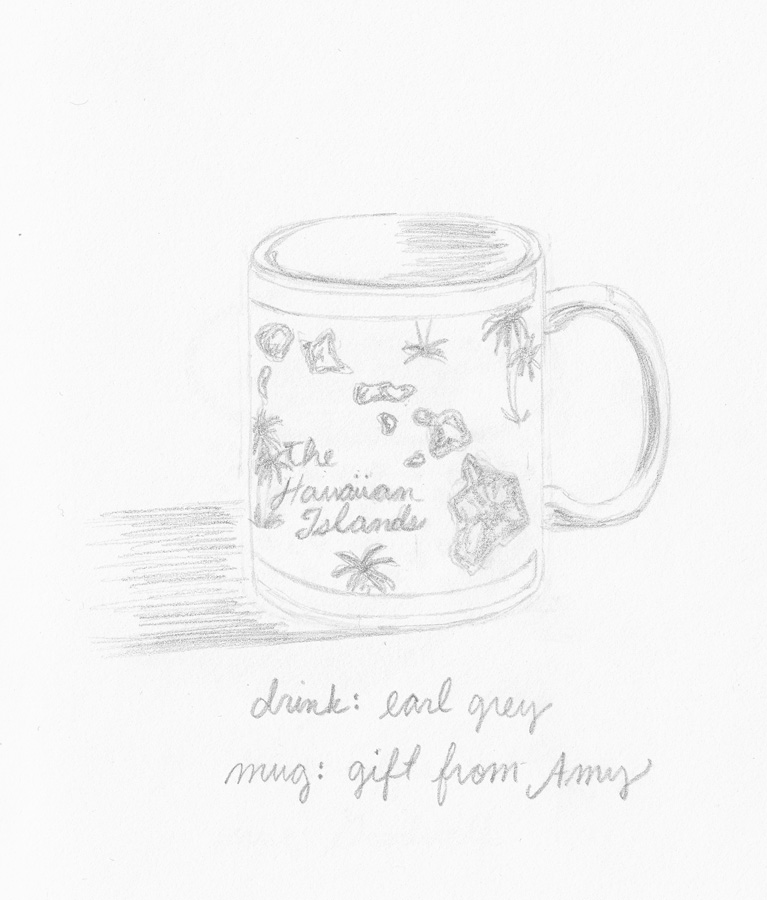 The
Hawaiian
Islands
drink: earl grey
mug: gift from Amy